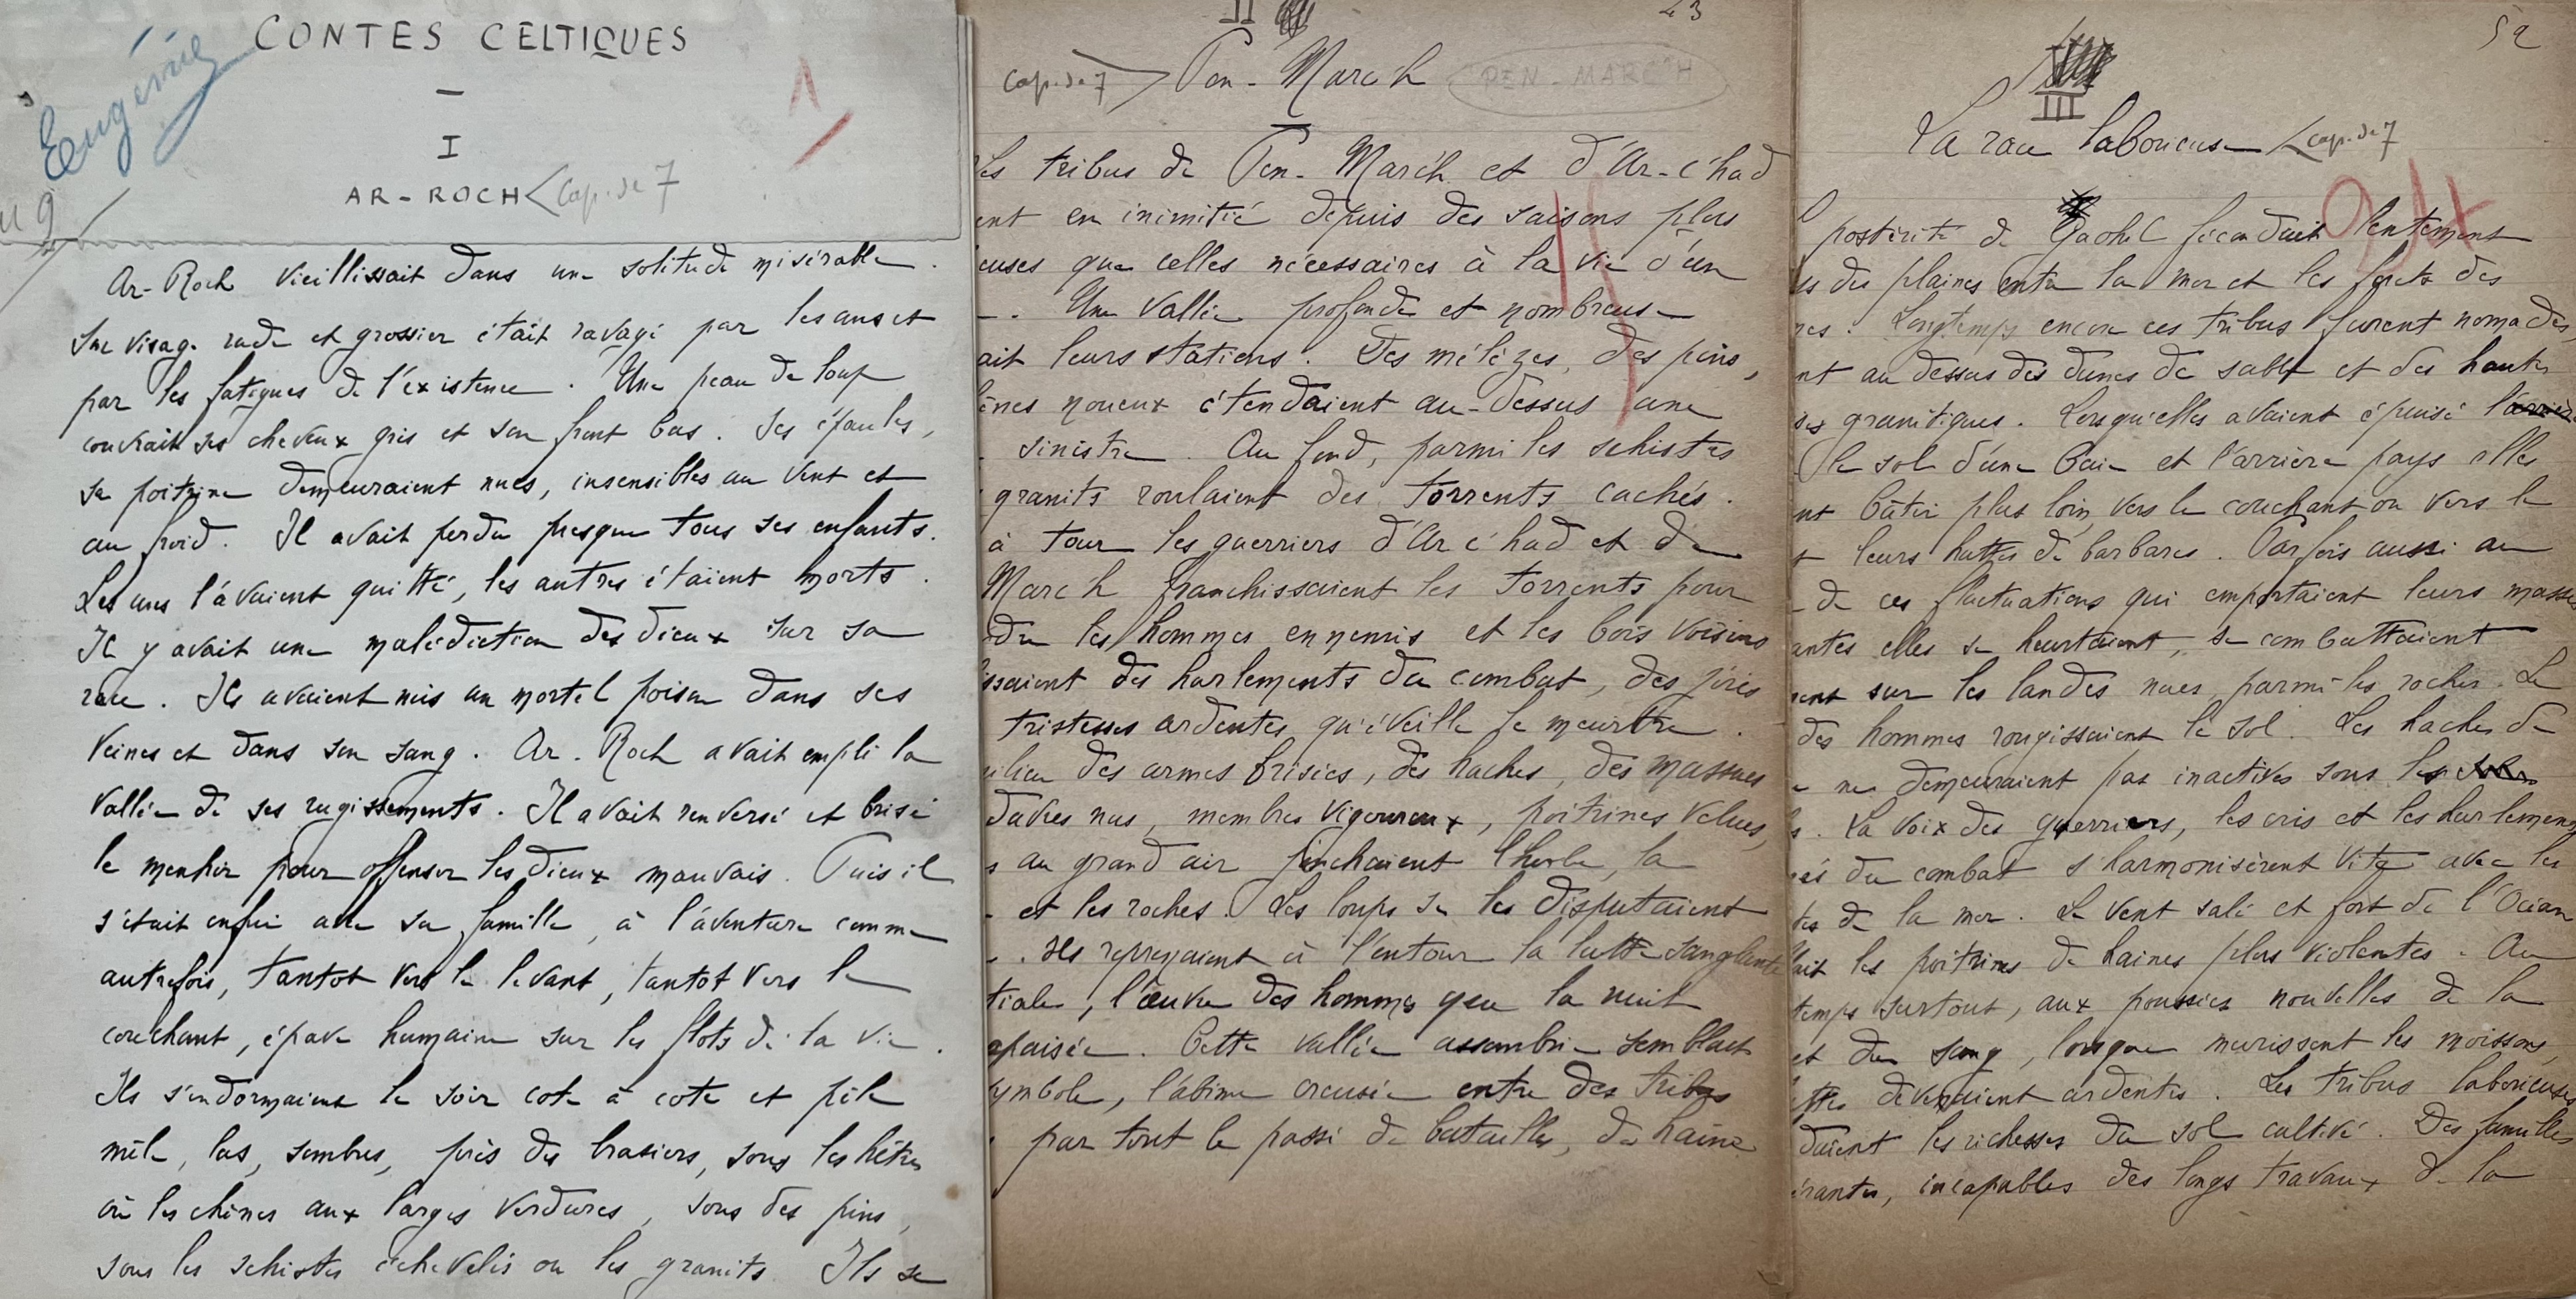 CONTES CELTIQUES
Eugénie
1
I
AR-ROCH < Cap. de 7
9
Ar-Roch vieillissait dans une solitude misérable.
Son visage rude et grossier était ravagé par les ans et
par les fatigues de l'existence. Une peau de loup
couvrait ses cheveux gris et son front bas. Ses épaules,
sa poitrine demeuraient nues, insensibles au vent et
au froid. Il avait perdu presque tous ses enfants.
Les uns l'avaient quitté, les autres étaient morts.
Il y avait une malédiction des dieux sur sa
race. Ils avaient mis un mortel poison dans ses
veines et dans son sang. Ar-Roch avait empli la
vallée de ses rugissements. Il avait renversé et brisé
le menhir pour offenser les dieux mauvais. Puis il
s'était enfui avec sa famille, à l'aventure comme
autrefois, tantot vers le levant, tantot vers le
couchant, épave humaine sur les flots de la vie.
Ils s'endormaient le soir cote à cote et pêle
mêle, las, sombres, près des brasiers, sous les hêtres
où les chênes aux larges verdures, sous des pins,
sous les schistes échevelés ou les granits. Ils se
II
43
Cap. de 7 > Pen-March PEN-MARC'H
Les tribus de Pen-Marc'h et d'Ar-c'had
ent en inimitié depuis des saisons plus
euses que celles nécessaires à la vie d'un
. Une vallée profonde et nombreuse
ait leurs stations. Des mélèzes, des pins,
ênes noueux étendaient au-dessus une
sinistre. Au fond, parmi les schistes
granits roulaient des torrents cachés.
à tour les guerriers d'Ar c'had et de
Marc'h franchissaient les torrents pour
dre les hommes ennemis et les bois voisins
issaient des hurlements du combat, des joies
tristesses ardentes qu'éveille le meurtre.
ilieu des armes brisées, des haches, des massues
davres nus, membres vigoureux, poitrines velues,
s au grand air jonchaient l'herbe, la
et les roches. Les loups se les disputaient
. Ils reprenaient à l'entour la lutte sanglante
tiale, l'œuvre des hommes que la nuit
apaisée. Cette vallée assombrie semblait
ymbole, l'abîme creusé entre des tribus
par tout le passé de batailles, de haine
52
III
La race laborieuse < Cap. de 7
postérité de Gaohel fécondait lentement
es des plaines entre la mer et les forêts des
res. Longtemps encore ces tribus furent nomades,
nt au dessus des dunes de sable et des hautes
ses granitiques. Lorsqu'elles avaient épuisé
le sol d'une baie et l'arrière pays elles
nt bâtir plus loin, vers le couchant ou vers le
t leurs huttes de barbares. Parfois aussi au
de ces fluctuations qui emportaient leurs masses
antes elles se heurtaient, se combattaient
ent sur les landes nues, parmi les roches. Le
des hommes rougissaient le sol. Les haches de
e ne demeuraient pas inactives sous les
s. La voix des guerriers, les cris et les hurlements
és du combat s'harmonisèrent vite avec les
tes de la mer. Le vent salé et fort de l'Océan
lait les poitrines de haines plus violentes. Au
temps surtout, aux poussées nouvelles de la
et du sang, lorsque murissent les moissons,
uttes devenaient ardentes. Les tribus laborieuses
daient les richesses du sol cultivé. Des familles
érantes, incapables des longs travaux de la